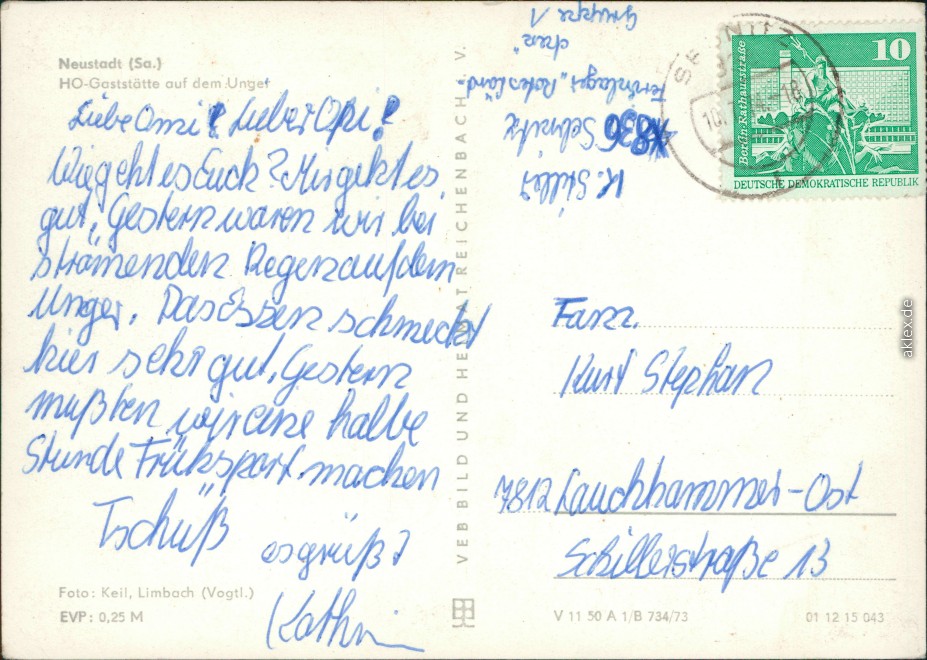 Neustadt (Sa.)
HO-Gaststätte auf dem Unger
Liebe Omi! Lieber Opi!
Wie geht es Euch? Mir geht es
gut, Gestern waren wir bei
strömenden Regen auf dem
Unger. Das Essen schmeckt
hier sehr gut. Gestern
mußten wir eine halbe
Stunde Frühsport machen
Tschüß
es grüßt
Kathrin
Foto: Keil, Limbach (Vogtl.)
EVP: 0,25 M
VEB BILD UND HEIMAT REICHENBACH I. V.
K. Stiller
836 Sebnitz
Ferienlager "Rotes Land"
Gruppe 1
SEBNITZ
10
Berlin-Rathausstraße
DEUTSCHE DEMOKRATISCHE REPUBLIK
Fam.
Kurt Stephan
7812 Lauchhammer-Ost
Schillerstraße 13
V 11 50 A 1/B 734/73
01 12 15 043
aklex.de